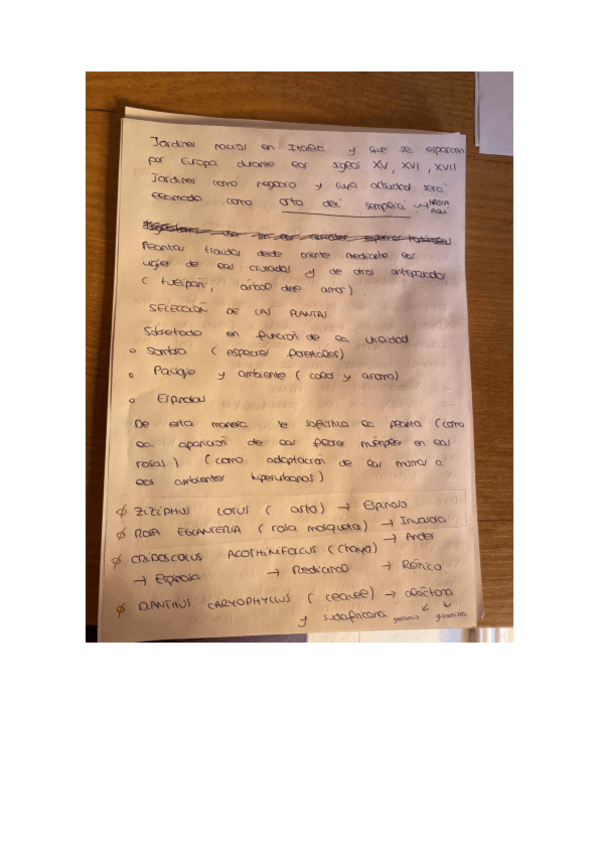 Jardines nacidos en Italia y que se esparcen
por Europa durante los siglos XV, XVI, XVII
Jardines como negocio y cuya actividad será
llamada como orto dei semplici → HASTA
AQUÍ
Plantas traídas desde oriente mediante los
viajes de las cruzadas y de otros antepasados
(tulipán, árbol del amor).
SELECCIÓN DE LAS PLANTAS
Sobretodo en función de la utilidad
o Sombra (especies forestales)
o Paisaje y ambiente (color y aroma)
o Espinosas
De esta manera se sofistica la planta (como
la aparición de las flores múltiples en las
rosas) (como adaptación de las mismas a
los ambientes hiperurbanos)
ZIZIPHUS LOTUS (arto) → Espinosa
ROSA EGLANTERIA (rosa mosqueta) → Invasora
→ Andes
CNIDOSCOLUS ACOTHINIFOLCUS (chaya)
→ Espinosa → Medicinal → Rústica
DIANTHUS CARYOPHYLLUS (clavel) → alóctona
y sudafricana geranio gitanilla